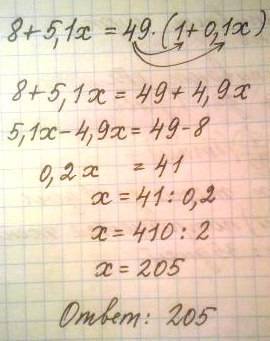 8+5,1x = 49·(1+0,1x)
8+5,1x = 49+4,9x
5,1x-4,9x=49-8
0,2x = 41
x = 41 : 0,2
x = 410 : 2
x = 205
Ответ: 205